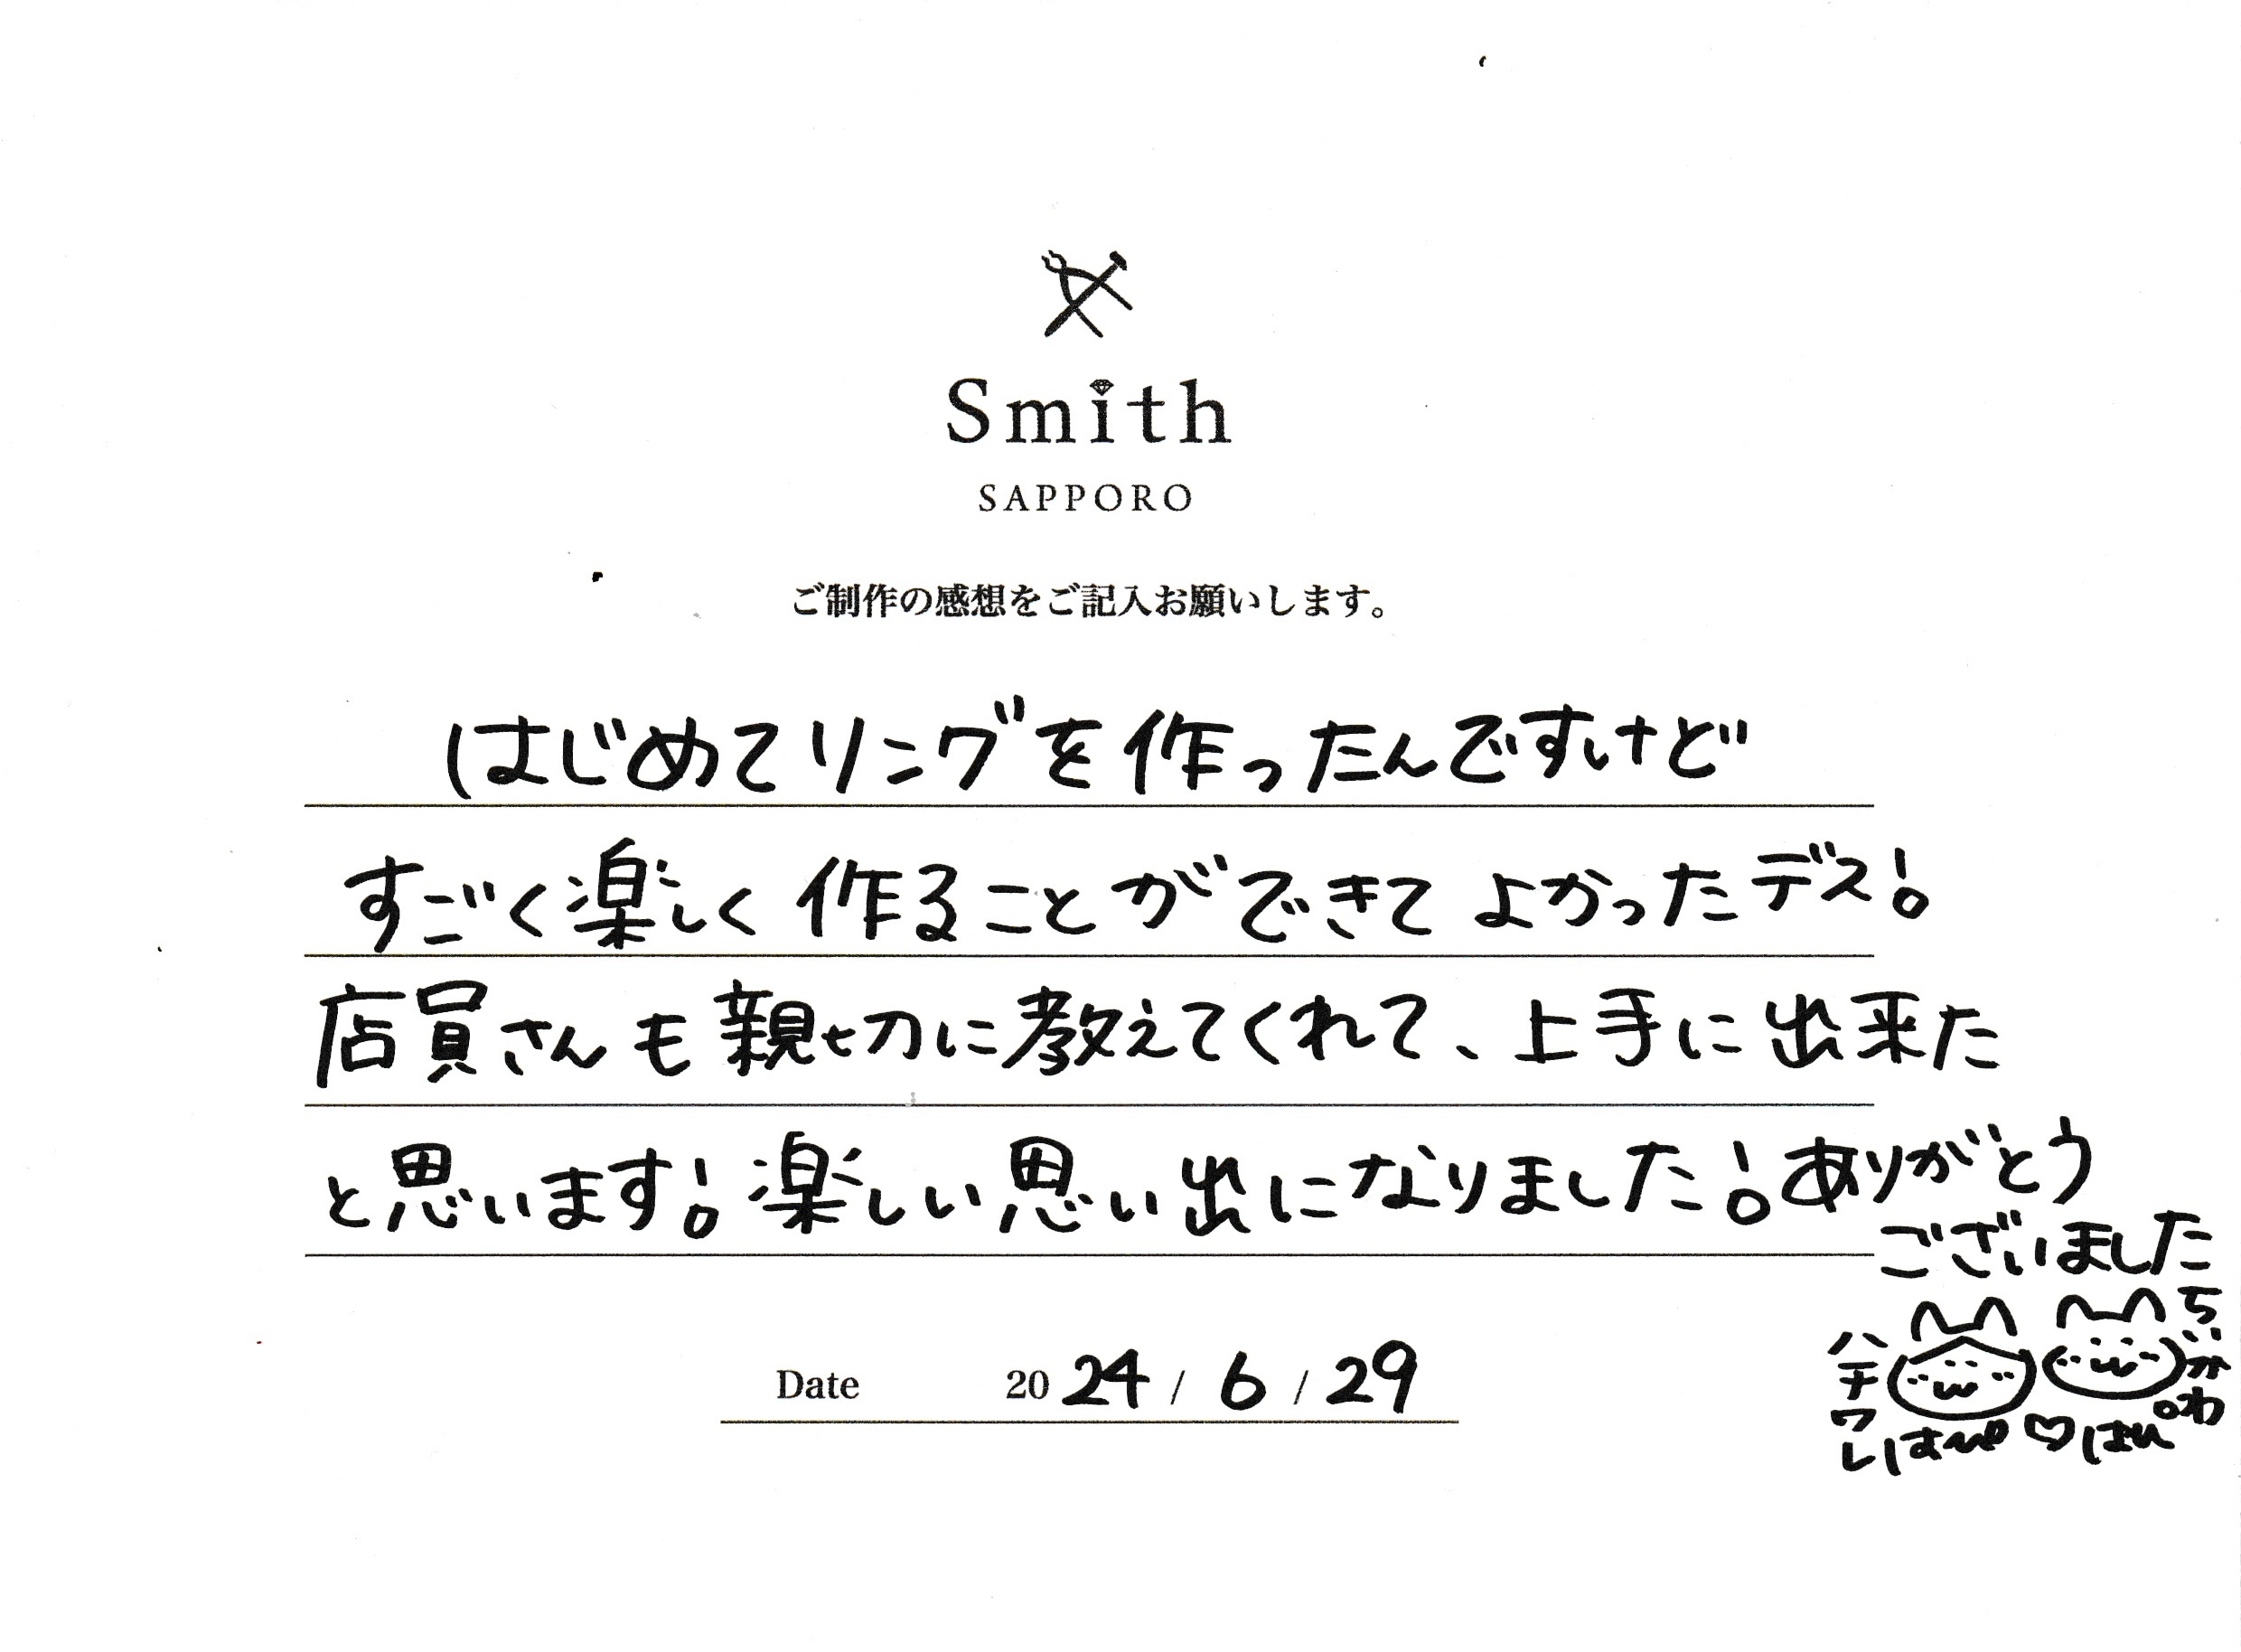 Smith
SAPPORO
ご制作の感想をご記入お願いします。
はじめてリングを作ったんですけど
すごく楽しく作ることができてよかったデス!
店員さんも親切に教えてくれて、上手に出来た
と思います!楽しい思い出になりました!ありがとう
ございました
ハチワレ
Date 2024 / 6 / 29